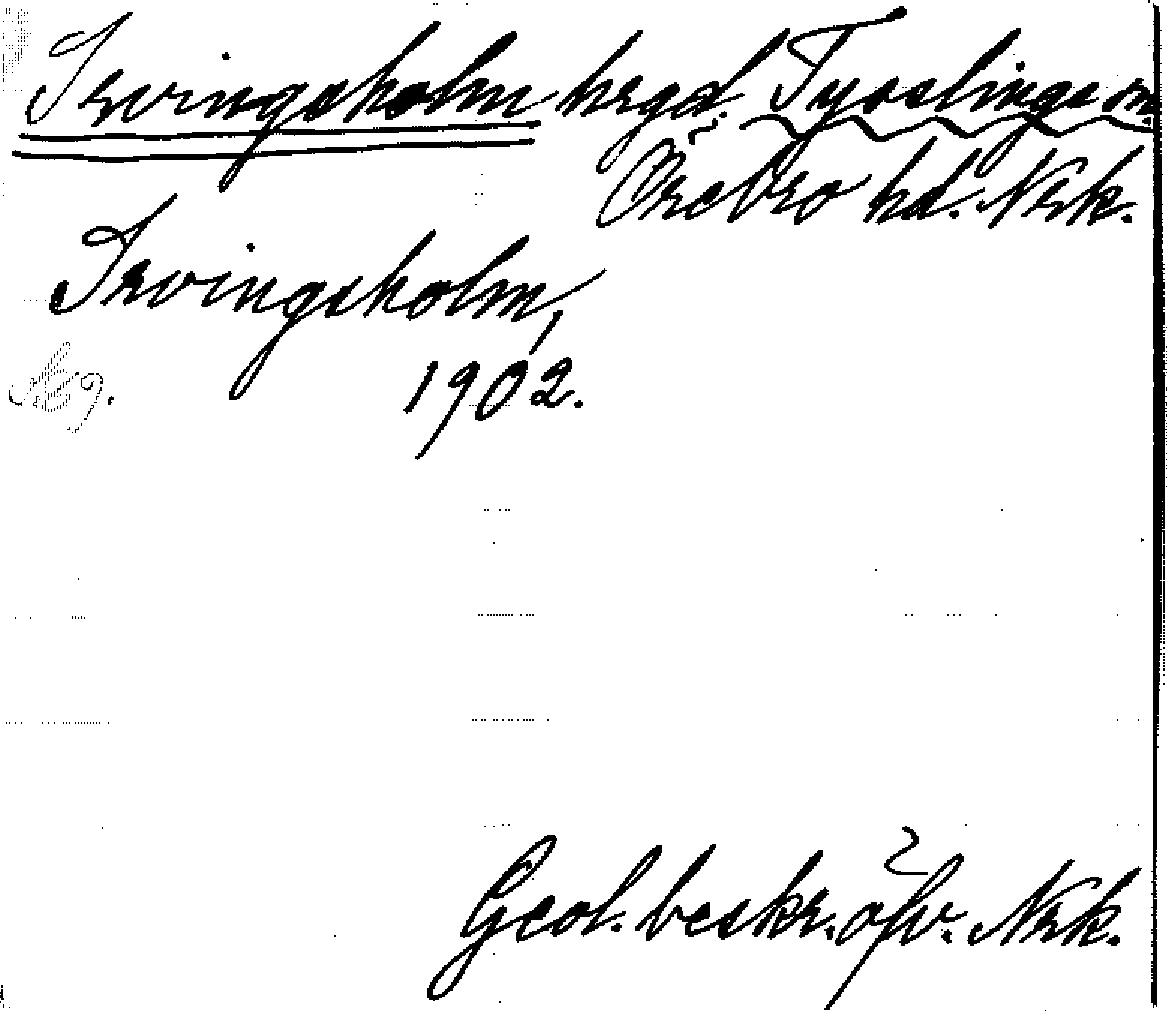 Irvingsholm hrgd Tysslinge sn
Örebro hd. Nrk.
Irvingsholm,
1902.
Geol. beskr. öfv. Nrk.